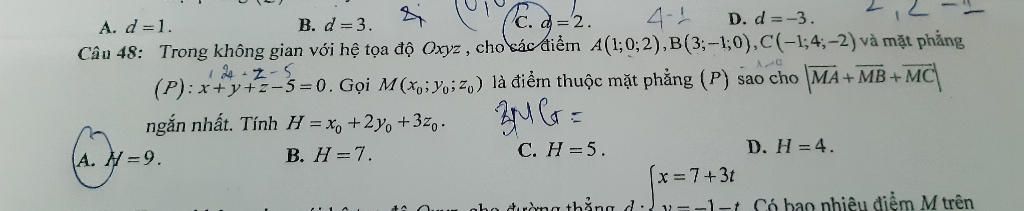 A. d = 1. B. d = 3. C. d = 2. 4 - 1 D. d = -3.
Câu 48: Trong không gian với hệ tọa độ Oxyz , cho các điểm A(1;0;2), B(3;-1;0), C(-1;4;-2) và mặt phẳng
(P): x + y + z - 5 = 0. Gọi M(x₀; y₀; z₀) là điểm thuộc mặt phẳng (P) sao cho |MA + MB + MC|
ngắn nhất. Tính H = x₀ + 2y₀ + 3z₀. 3MG =
A. H = 9. B. H = 7. C. H = 5. D. H = 4.
x = 7 + 3t
cho đường thẳng d : y = -1 - t Có bao nhiêu điểm M trên